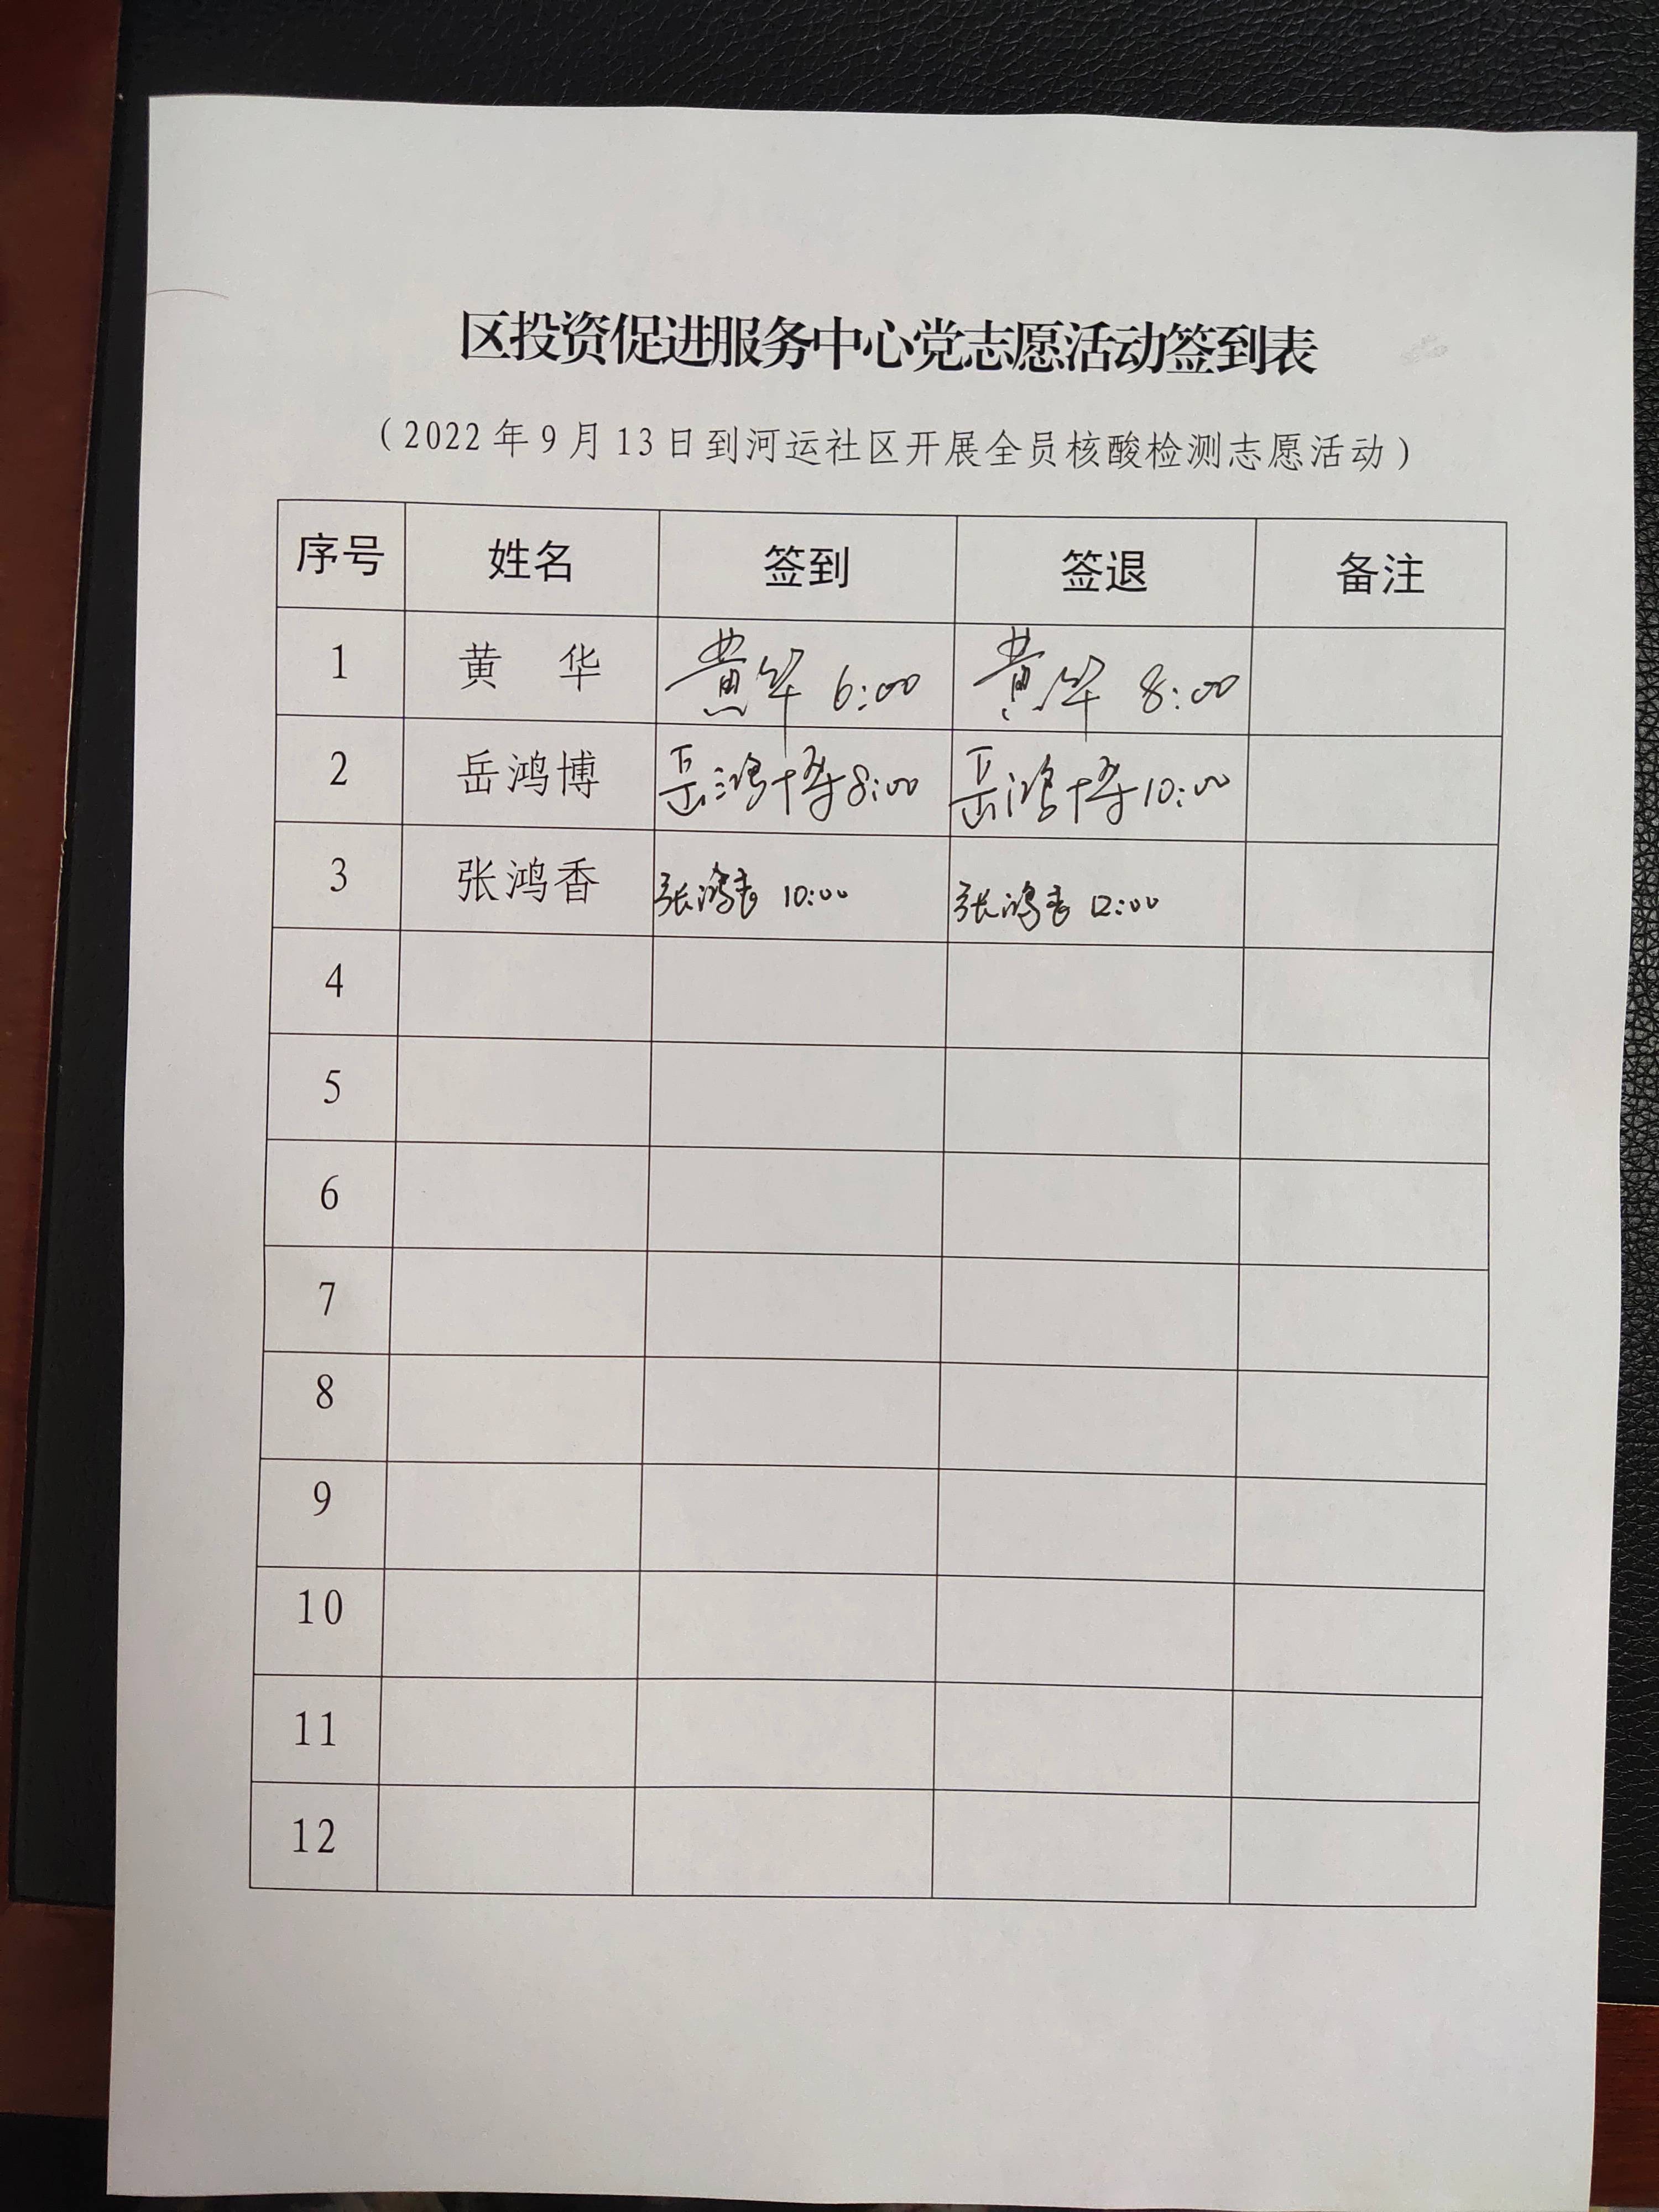 区投资促进服务中心党志愿活动签到表
（2022年9月13日到河运社区开展全员核酸检测志愿活动）
序号 姓名 签到 签退 备注
1 黄 华 黄华 6:00 黄华 8:00
2 岳鸿博 岳鸿博 8:00 岳鸿博 10:00
3 张鸿香 张鸿香 10:00 张鸿香 12:00
4
5
6
7
8
9
10
11
12